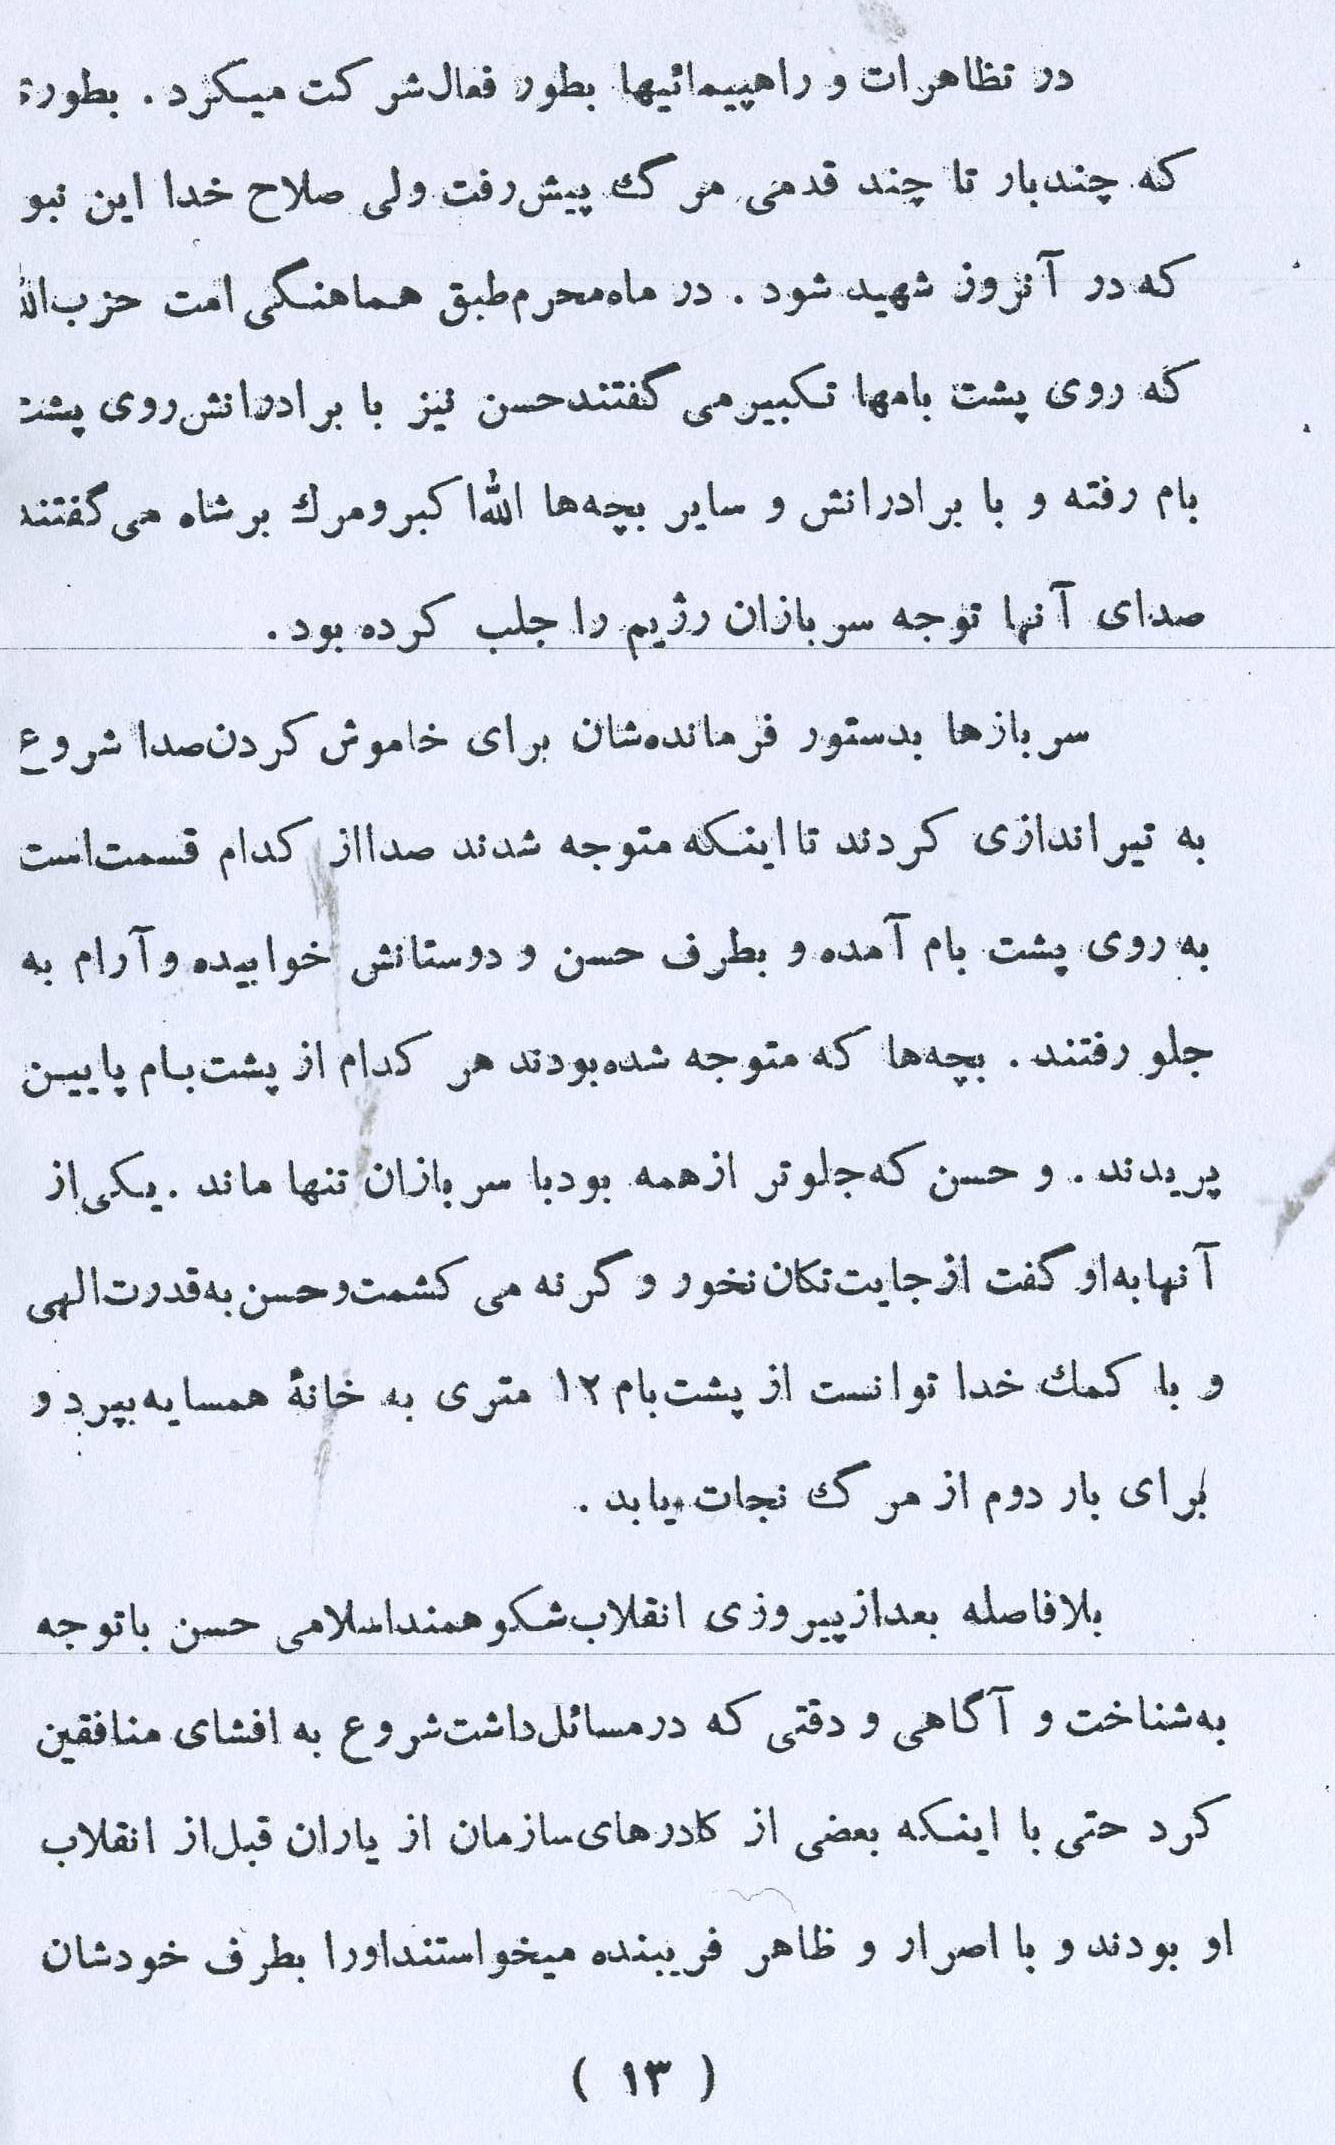 در تظاهرات و راهپیمائیها بطور فعال شرکت میکرد . بطوری
که چندبار تا چند قدمی مرگ پیش رفت ولی صلاح خدا این نبو
که در آنروز شهید شود . در ماه محرم طبق هماهنگی امت حزب الله
که روی پشت بامها تکبیر می گفتند حسن نیز با برادرانش روی پشت
بام رفته و با برادرانش و سایر بچه‌ها الله اکبر و مرگ بر شاه می گفتند
صدای آنها توجه سربازان رژیم را جلب کرده بود .
سربازها بدستور فرمانده‌شان برای خاموش کردن صدا شروع
به تیراندازی کردند تا اینکه متوجه شدند صدا از کدام قسمت است
به روی پشت بام آمده و بطرف حسن و دوستانش خوابیده و آرام به
جلو رفتند . بچه‌ها که متوجه شده بودند هر کدام از پشت بام پایین
پریدند . و حسن که جلوتر از همه بود با سربازان تنها ماند . یکی از
آنها به او گفت از جایت تکان نخور و گرنه می کشمت و حسن به قدرت الهی
و با کمک خدا توانست از پشت بام ۱۲ متری به خانهٔ همسایه بپرد و
برای بار دوم از مرگ نجات یابد .
بلافاصله بعد از پیروزی انقلاب شکوهمند اسلامی حسن با توجه
به شناخت و آگاهی و دقتی که در مسائل داشت شروع به افشای منافقین
کرد حتی با اینکه بعضی از کادرهای سازمان از یاران قبل از انقلاب
او بودند و با اصرار و ظاهر فریبنده میخواستند او را بطرف خودشان
( ۱۳ )